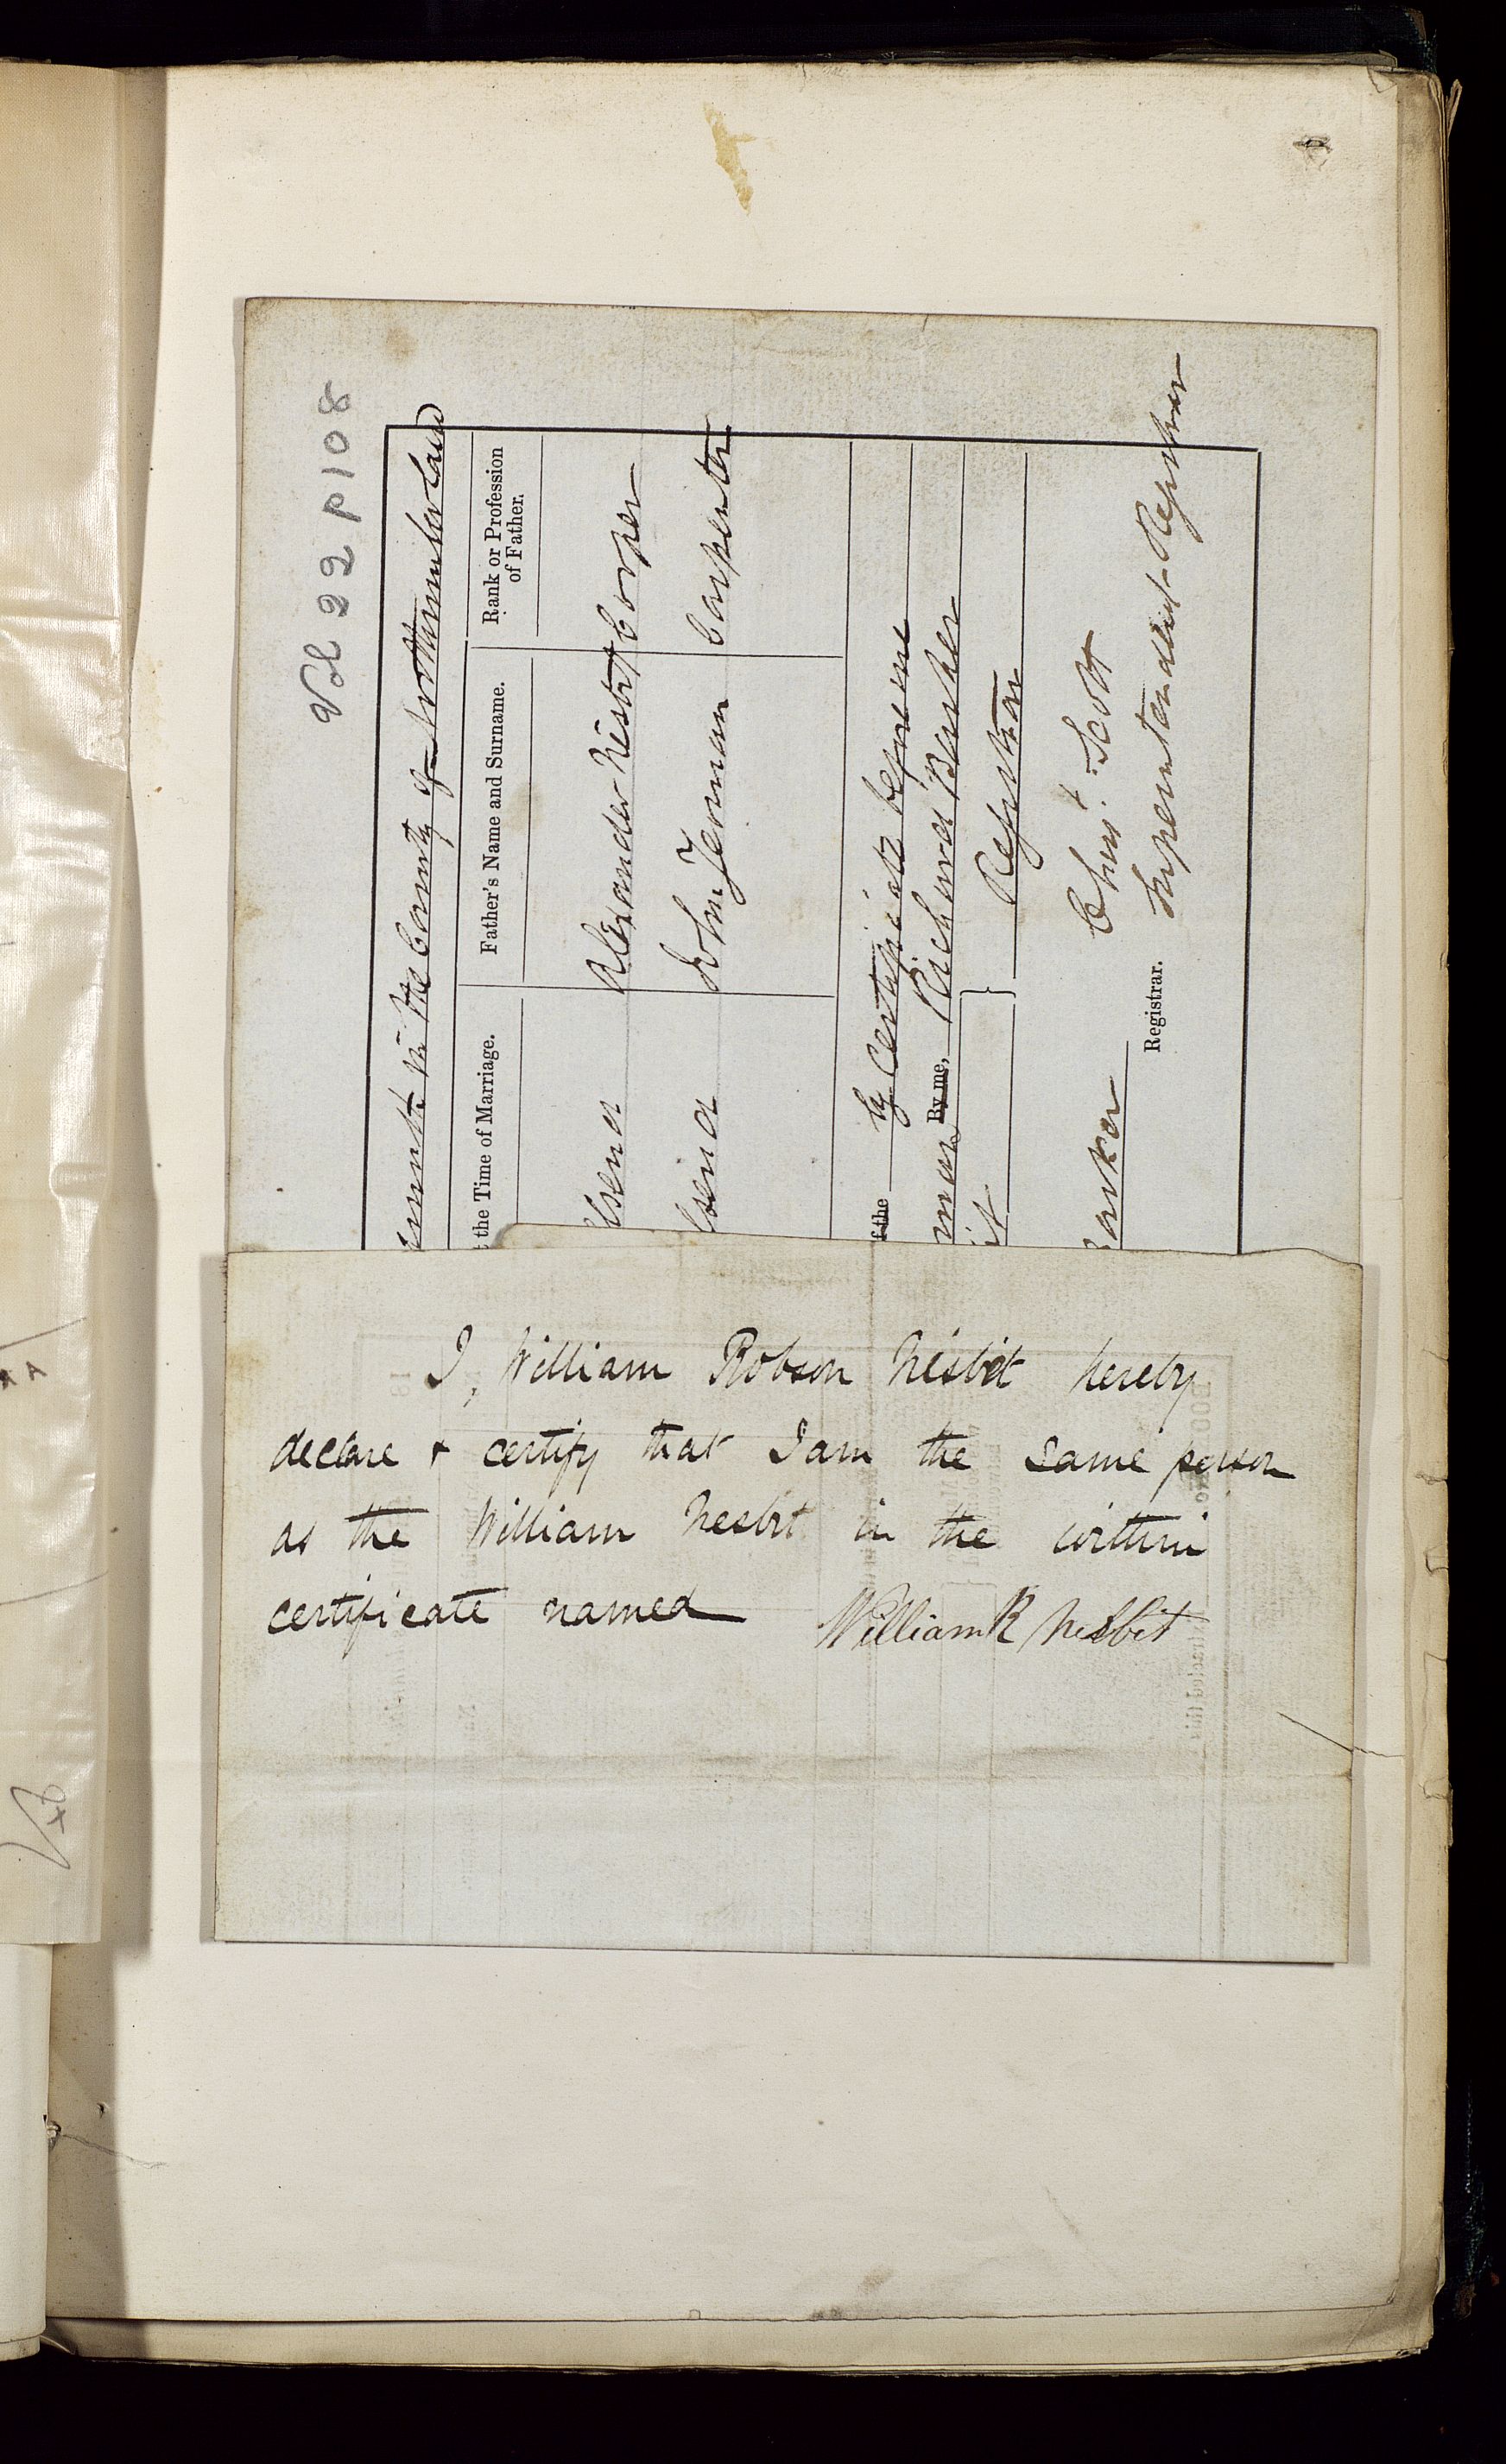 Vol 22 P 108
in the County of Northumberland
the Time of Marriage.
Father's Name and Surname.
Rank or Profession
of Father.
Alexander Nesbit
John Jerman
Carpenter
f the
by Certificate before me
By me, Richard Barker
Registrar
Chris.r Scott
Registrar.
Superintendent Registrar
I, William Robson Nesbit hereby
declare & certify that I am the same person
as the William Nesbit in the within
certificate named William R Nesbit